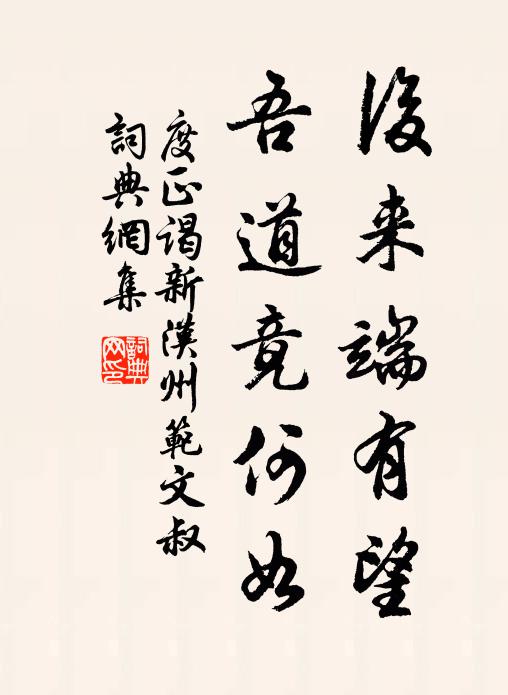 後来端有望
吾道竟何如
度正謁新漢州範文叔
詞典網集
詞典
网印